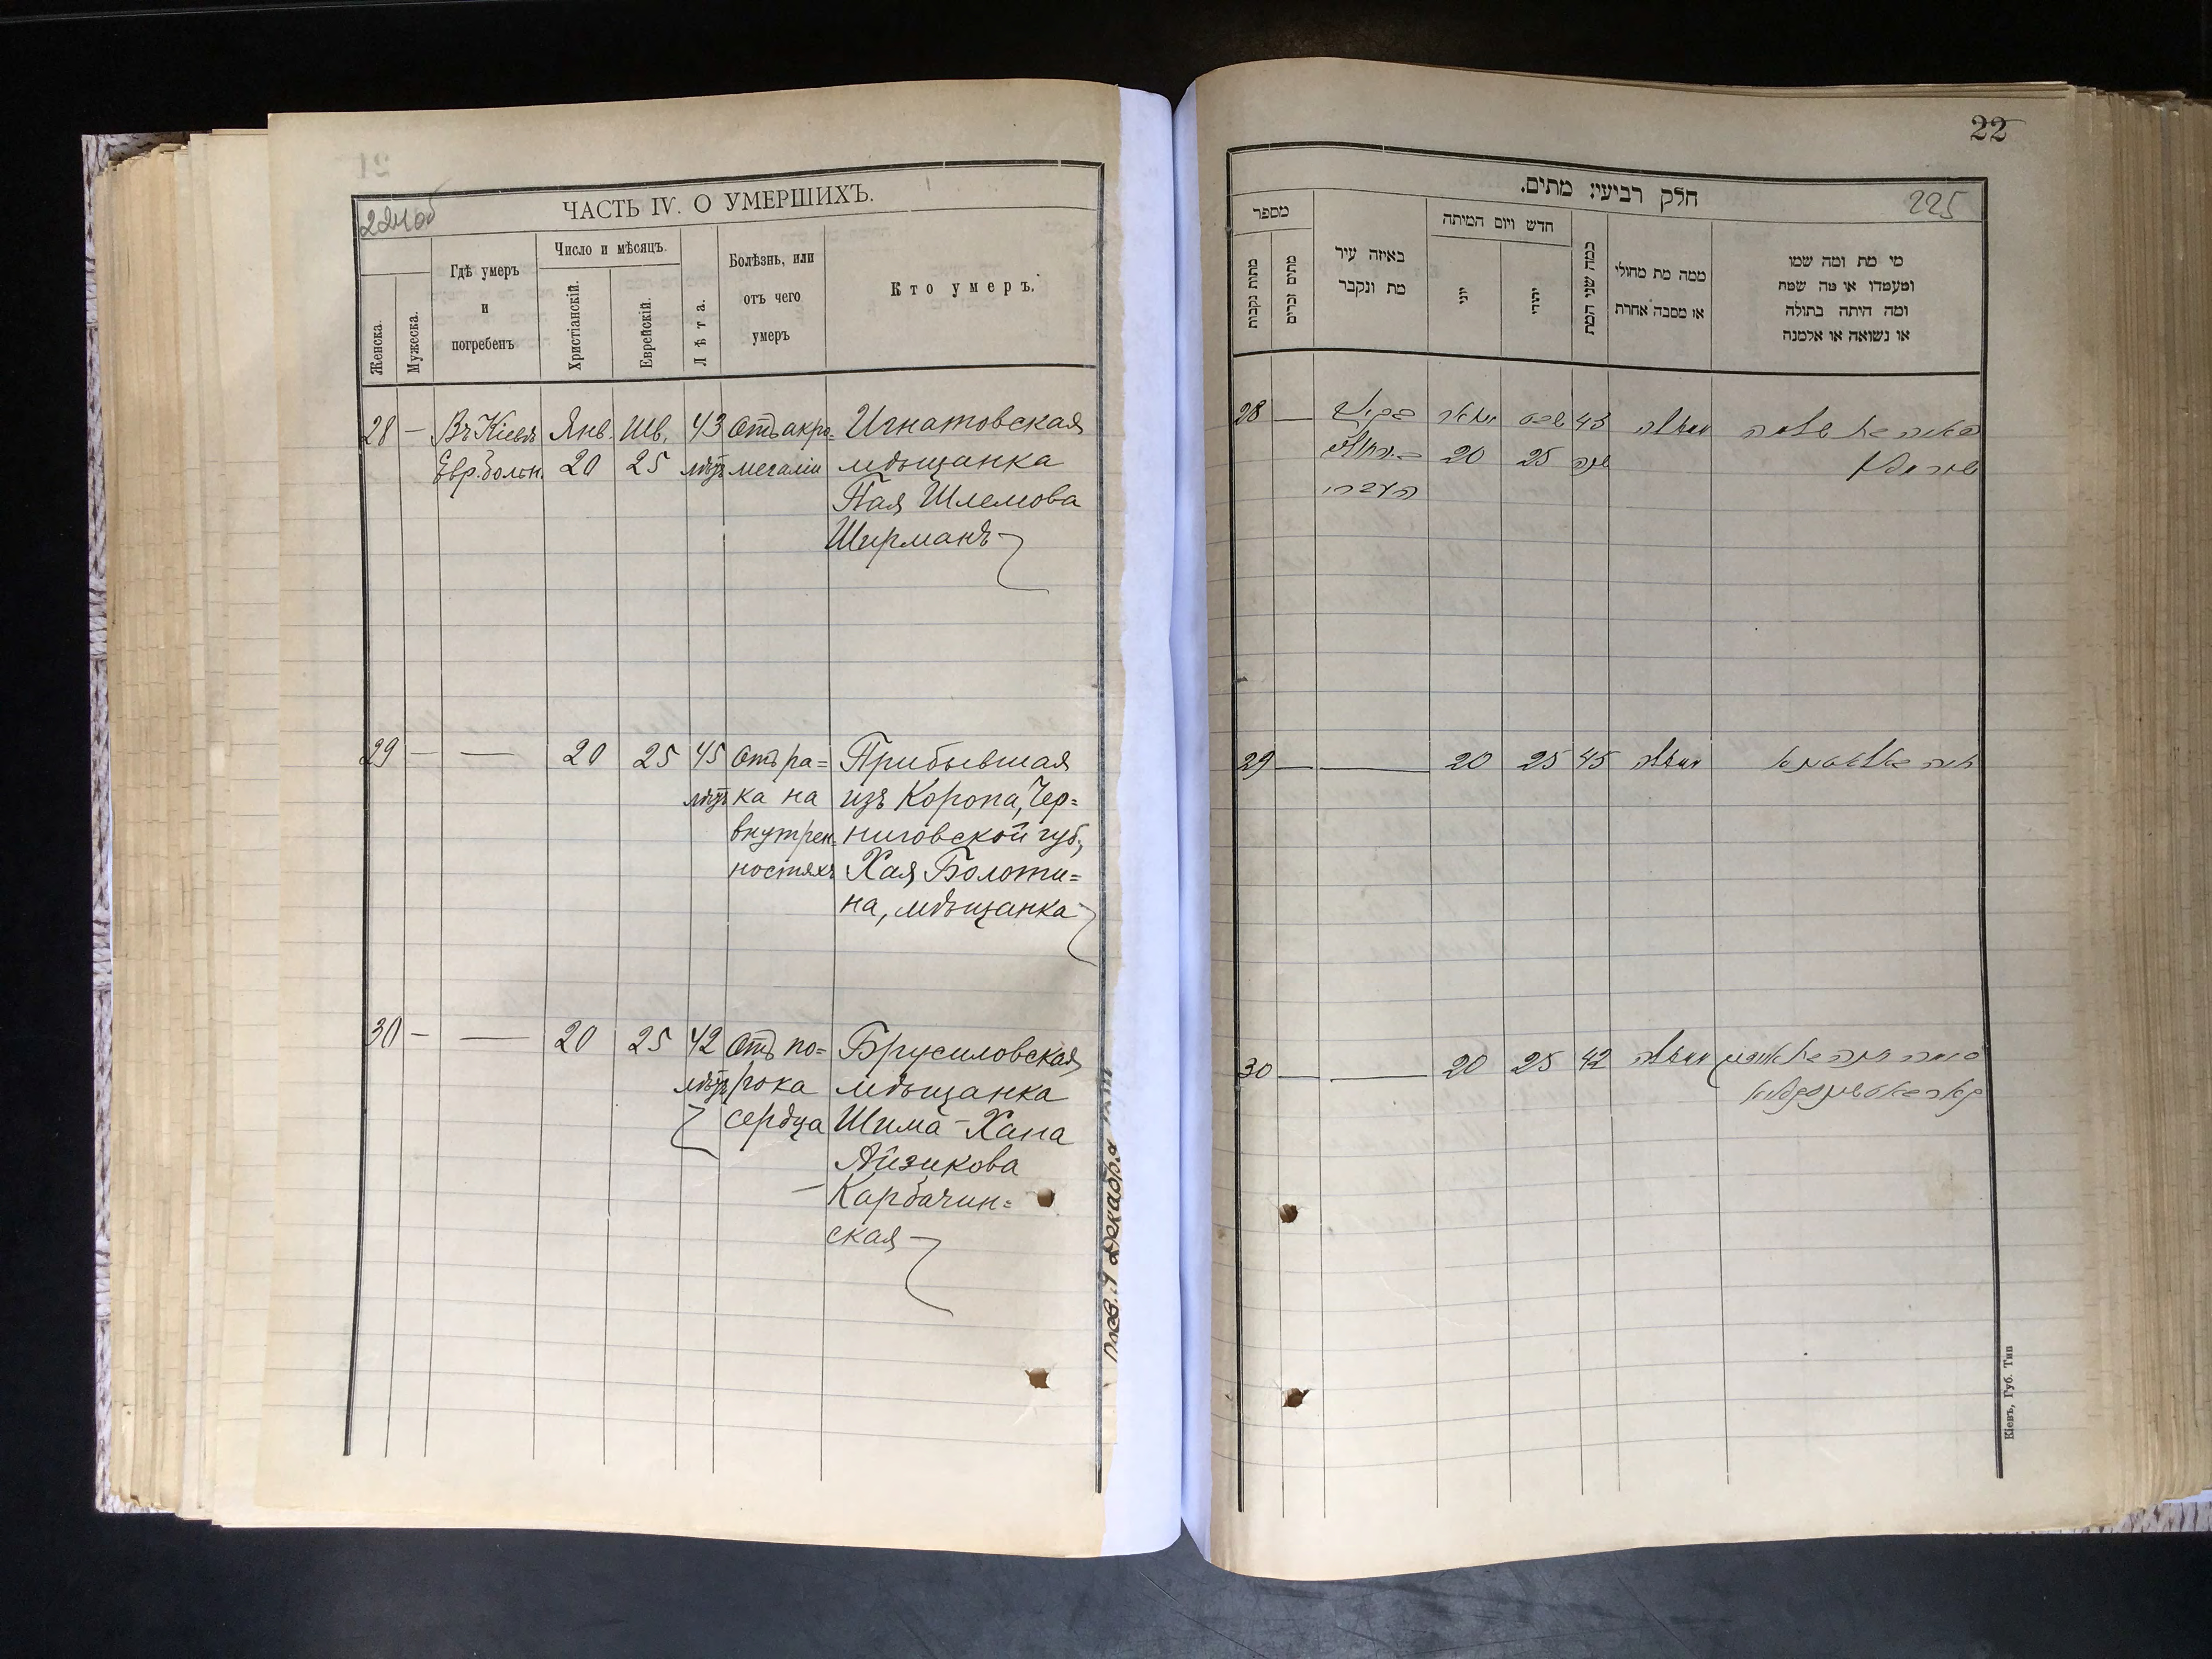 224об
ЧАСТЬ IV. О УМЕРШИХЪ.
Женска.
Мужеска.
Гдѣ умеръ
и
погребенъ
Число и мѣсяцъ.
Христіанскій.
Еврейскій.
Лѣта.
Болѣзнь, или
отъ чего
умеръ
Кто умеръ.
28 — Въ Кіевѣ Янв. Шв. 43 Отъ акро- Игнатовская
Евр. больн. 20 25 лѣтъ мегаліи мѣщанка
Пая Шлемова
Ширманъ
29 — — 20 25 45 Отъ ра= Прибывшая
лѣтъ ка на изъ Коропа, Чер=
внутрен= ниговской губ.,
ностяхъ Хая Болоти=
на, мѣщанка
30 — — 20 25 42 Отъ по= Брусиловская
лѣтъ рока мѣщанка
сердца Шима-Хана
Айзикова
Карбачин=
ская
Декабря
22
225
חלק רביעי: מתים.
מספר
מתות נקבות
מתים זכרים
באיזה עיר
מת ונקבר
חדש ויום המיתה
יוני
יהודי
כמה שני המת
ממה מת מחולי
או מסבה אחרת
מי מת ומה שמו
ומעמדו או מה שמה
ומה היתה בתולה
או נשואה או אלמנה
28 — יאנואר שבט 43
20 25 שנה
העברי
29 — — 20 25 45
30 — — 20 25 42
Кіевъ, Губ. Тип